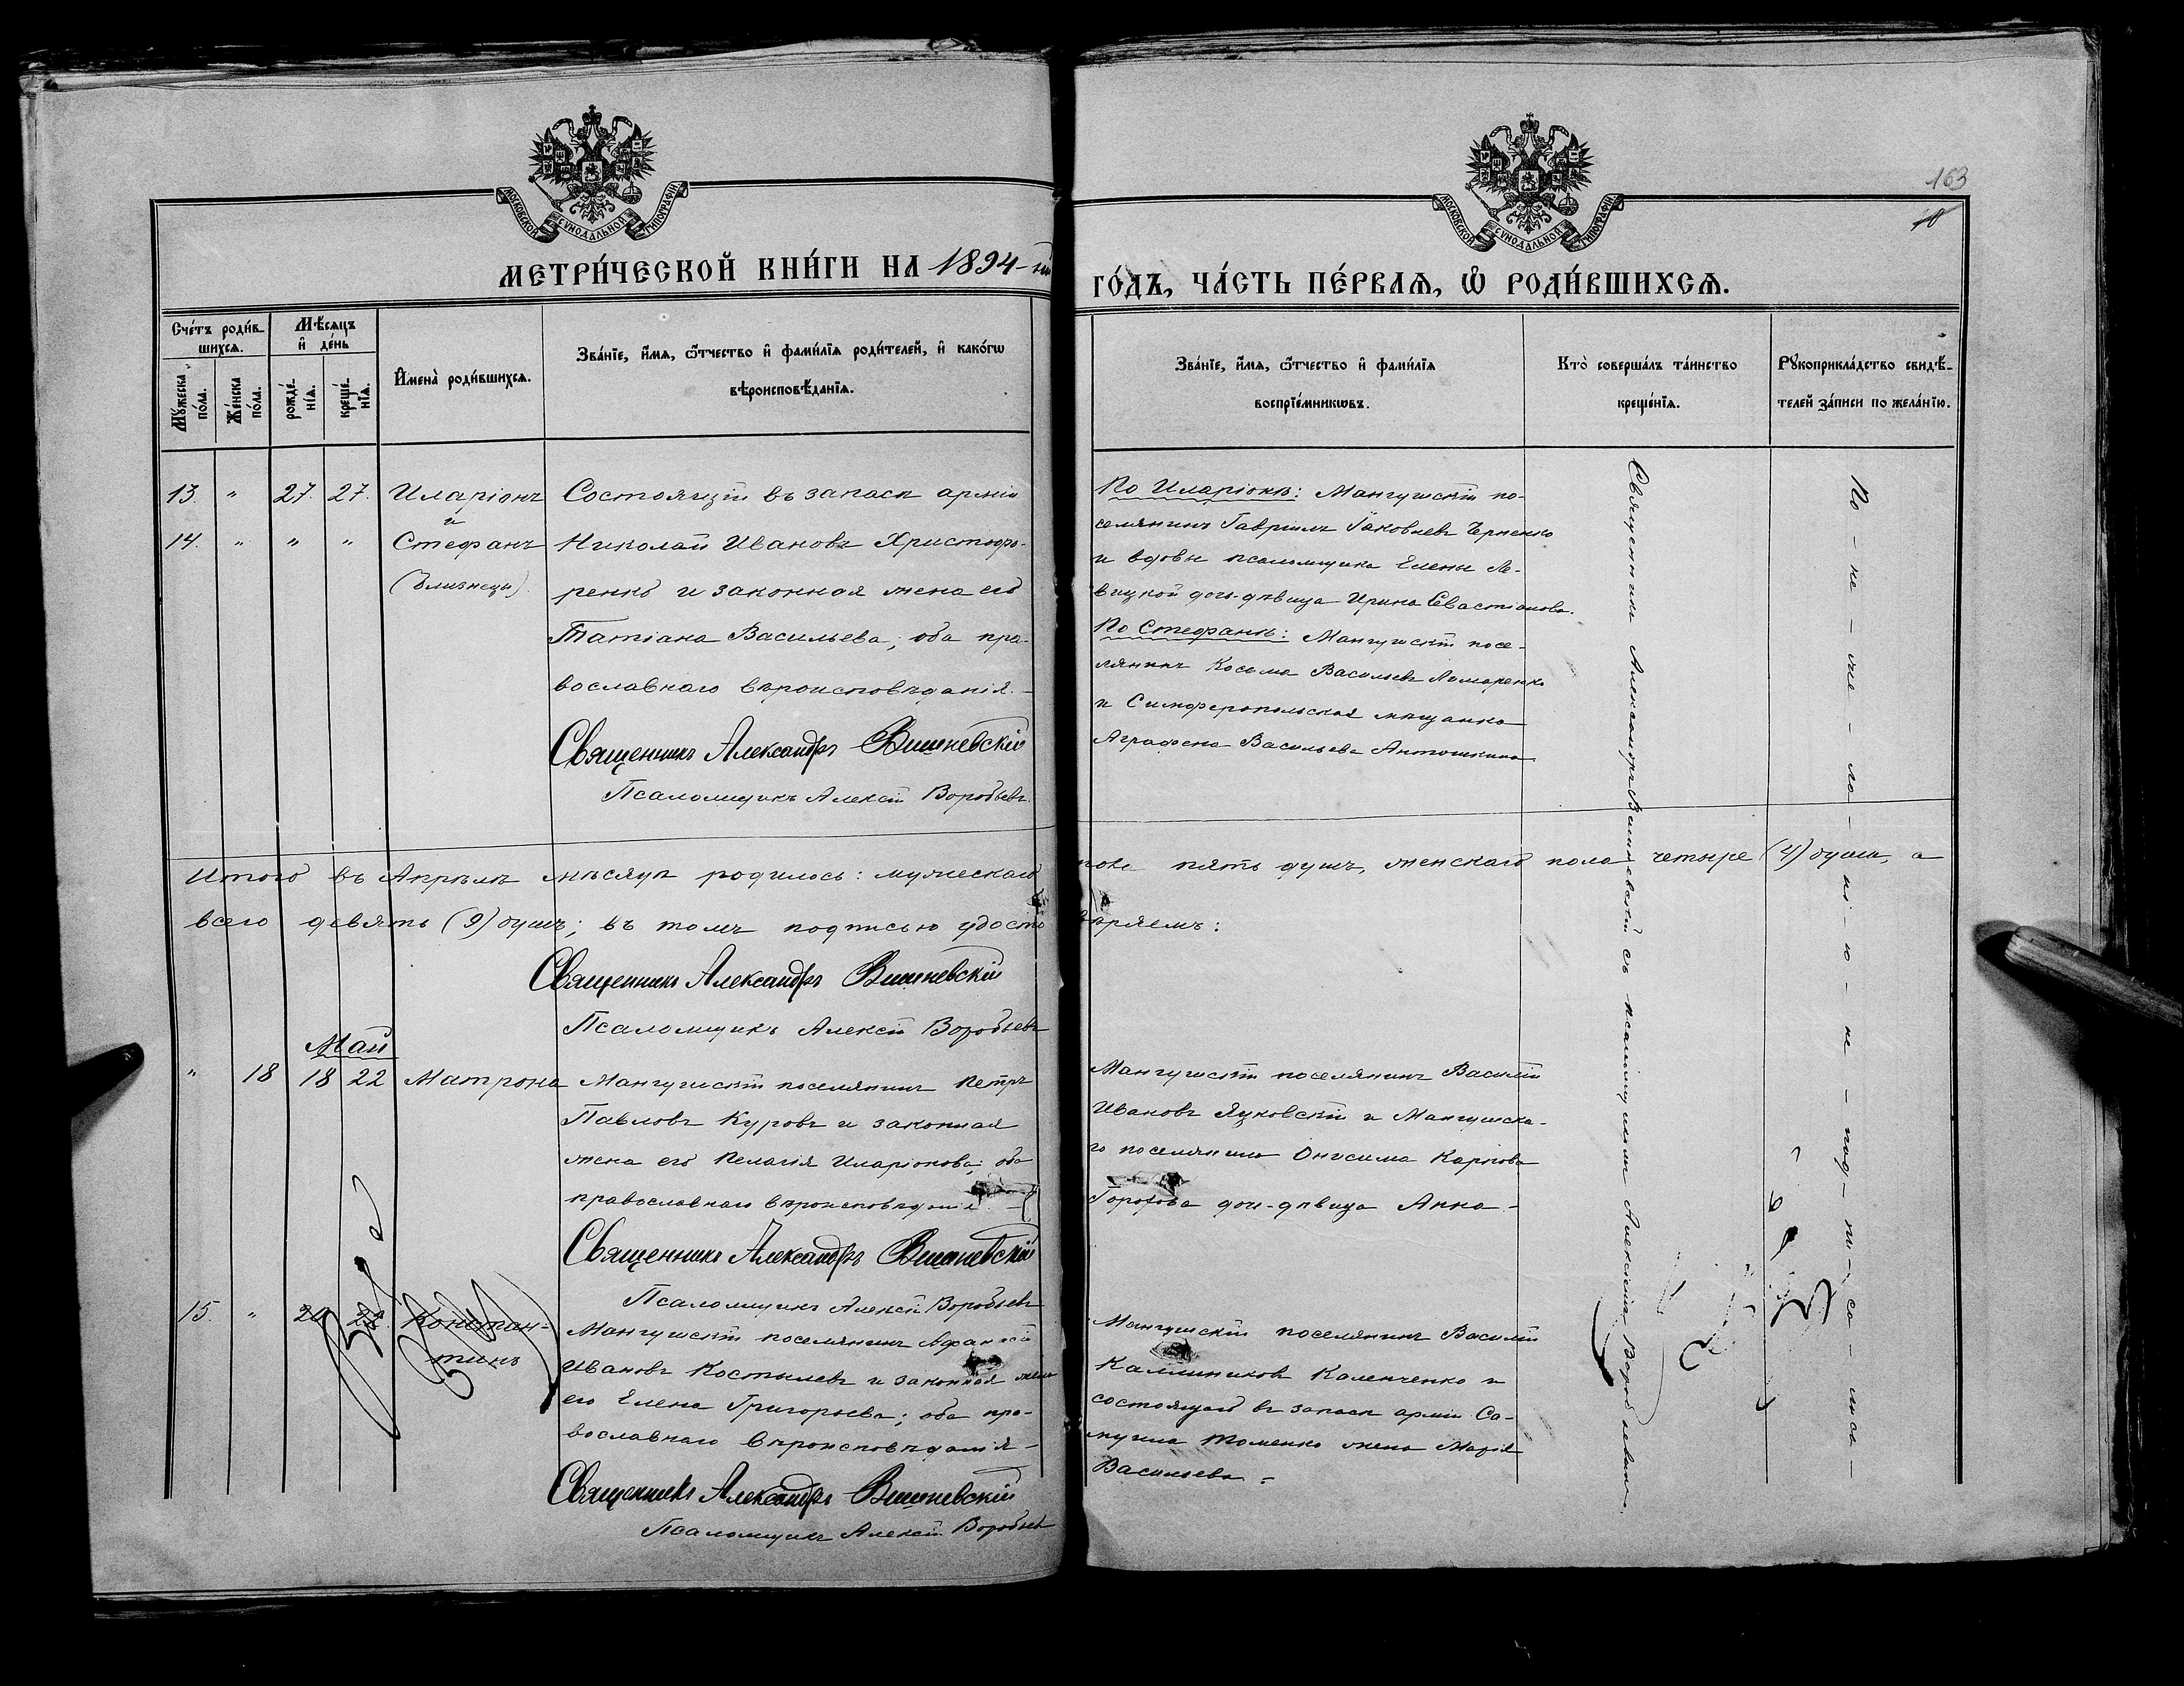 163
МОСКОВСКОЙ СѴНОДАЛЬНОЙ ТИПОГРАФІИ
МОСКОВСКОЙ СѴНОДАЛЬНОЙ ТИПОГРАФІИ
МЕТРИ́ЧЕСКОЙ КНИ́ГИ НА 1894-й
ГО́ДЪ, ЧА́СТЬ ПЕ́РВАѦ, Ѡ РОДИ́ВШИХСѦ.
Сче́тъ роди́в-
шихсѧ.
Мѣ́сѧцъ
и҆ де́нь
Мꙋ́жеска по́ла.
Же́нска по́ла.
рожде́-нїѧ.
креще́-нїѧ.
И҆мена̀ роди́вшихсѧ.
Зва́нїе, и҆́мѧ, ѻ҆́тчество и҆ фами́лїѧ роди́телей, и҆ како́гѡ
вѣроисповѣ́данїѧ.
Зва́нїе, и҆́мѧ, ѻ҆́тчество и҆ фами́лїѧ
воспрїе́мникѡвъ.
Кто̀ соверша́лъ та́инство
креще́нїѧ.
Рꙋкоприкла́дство свидѣ́-
телей за́писи по жела́нїю.
13. " 27. 27. Иларіонъ
и
14. " " " Стефанъ
(близнецы)
Состоящій въ запасѣ арміи
Николай Ивановъ Христофо-
ренко и законная жена его
Татіана Васильева; оба пра-
вославнаго вѣроисповѣданія.-
Священникъ Александръ Вишневскій
Псаломщикъ Алексій Воробьевъ
По Иларіонѣ: Мангушскій по-
селянинъ Гавріилъ Іаковлевъ Черненко
и вдовы псаломщика Елены Ле-
вицкой дочь-дѣвица Ирина Севастіанова.
По Стефанѣ: Мангушскій посе-
лянинъ Косьма Васильевъ
и Симферопольская мѣщанка
Аграфена Васильева Антошкина
Священникъ Александръ Вишневскій съ псаломщикомъ Алексіемъ Воробьевымъ.
По-не-же-ла-ні-ю-не-под-пи-са-лись-
Итого въ Апрѣлѣ мѣсяцѣ родилось: мужескаго пола пять душъ, женскаго пола четыре (4) души, а
всего девять (9) душъ; въ томъ подписью удостовѣряемъ:
Священникъ Александръ Вишневскій
Псаломщикъ Алексій Воробьевъ
Май
" 18 18 22 Матрона
Мангушскій поселянинъ Петръ
Павловъ Куровъ и законная
жена его Пелагія Иларіонова; оба
православнаго вѣроисповѣданія.-
Священникъ Александръ Вишневскій
Псаломщикъ Алексій Воробьевъ
Мангушскій поселянинъ Василій
Ивановъ Яцковскій и Мангушска-
го поселянина Онисима Карпова
Горохова дочь-дѣвица Анна.-
15. " 20 22. Констан-
тинъ
Мангушскій поселянинъ
Ивановъ Костылевъ и законная жена
его Елена Григорьева; оба пра-
вославнаго вѣроисповѣданія-
Священникъ Александръ Вишневскій
Псаломщикъ Алексій Воробьевъ
Мангушскій поселянинъ Василій
Каллиниковъ Каленченко и
состоящаго въ запасѣ арміи Са-
муила Томенко жена Марія
Васильева.-